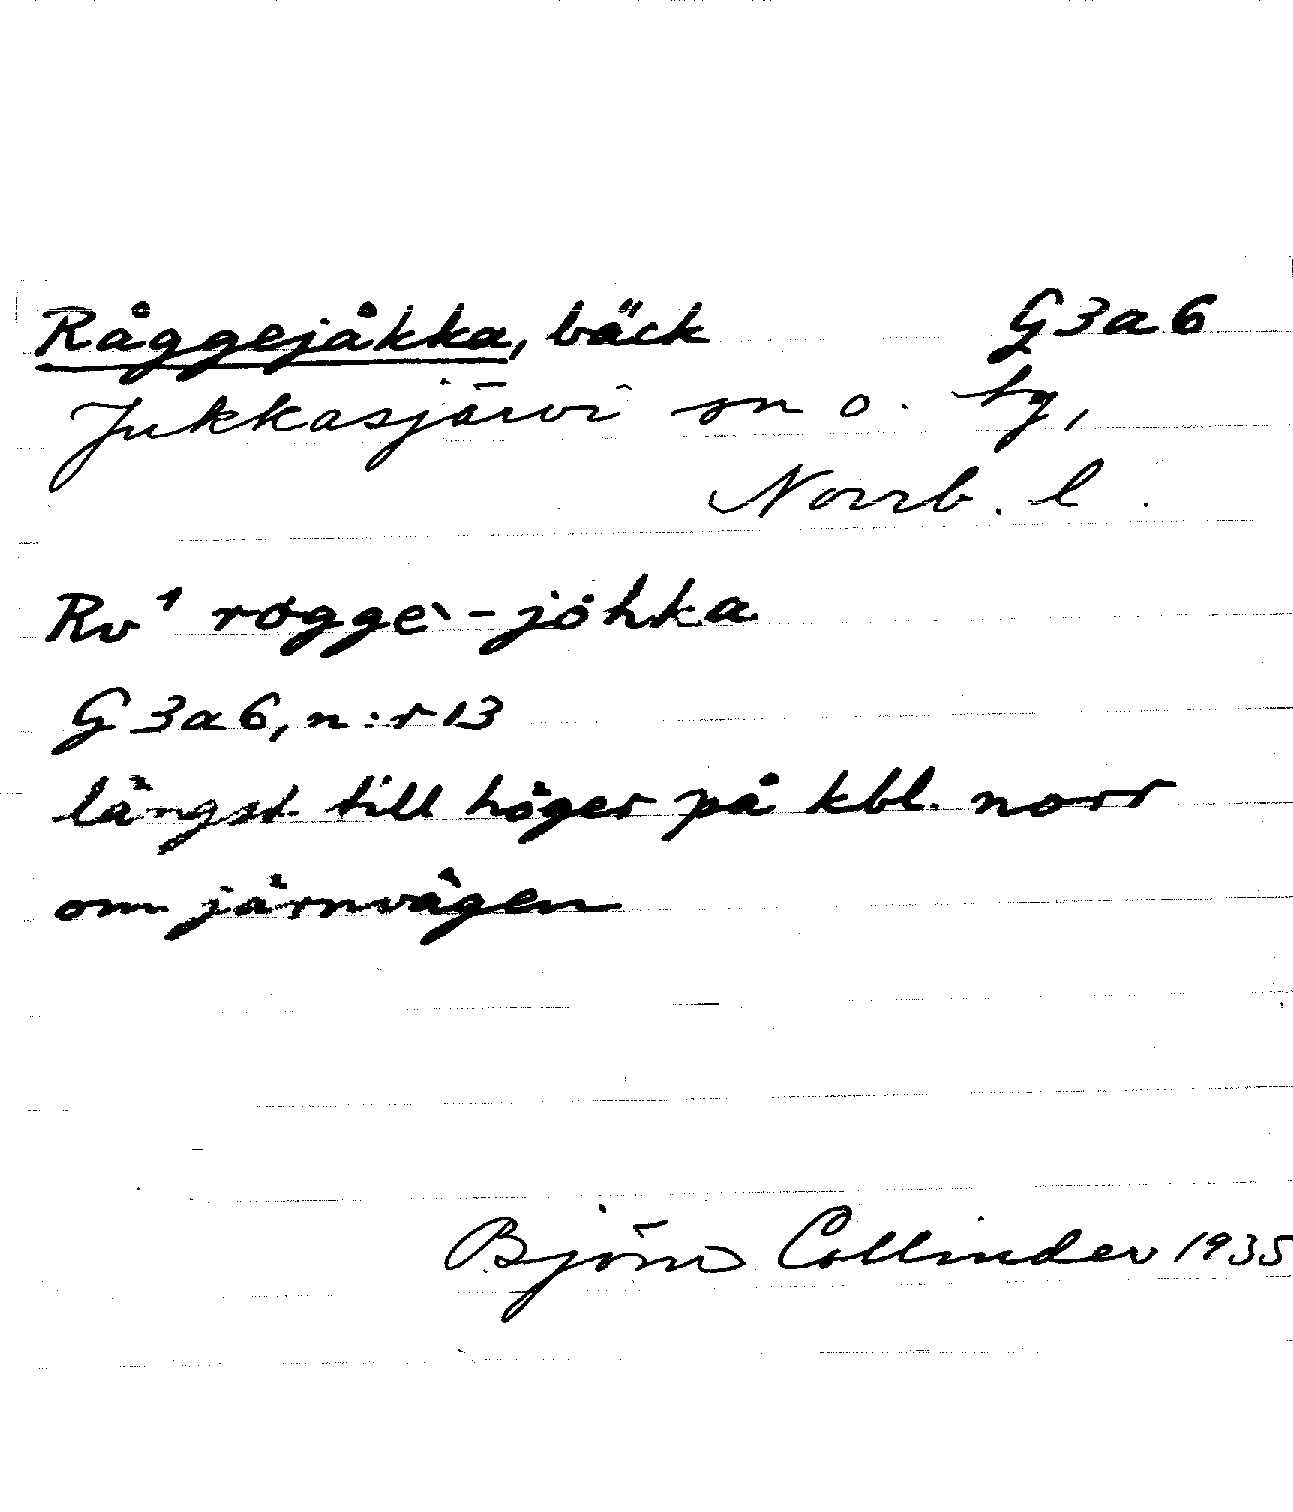 Råggejåkka, bäck G3a6
Jukkasjärvi sn o. tg,
Norrb. l.
Rv¹ rogge`-jȯhka
G3a6, n:r 13
längst till höger på kbl. norr
om järnvägen
Björn Collinder 1935